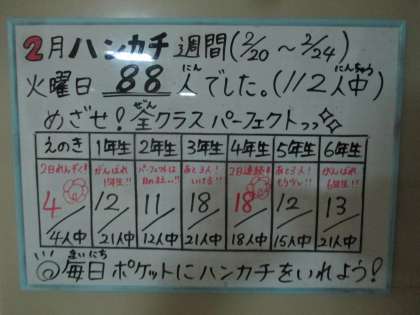 2月ハンカチ週間(2/20〜2/24)
火曜日 88人でした。(112人中)
にん にんちゅう
めざせ!全クラスパーフェクトっっ
ぜん
えのき 1年生 2年生 3年生 4年生 5年生 6年生
2日れんぞく!! がんばれ1年生!! パーフェクトは目のまえ…!! あと3人!いける!! 2日連続!! あと3人!もう少し!! がんばれ6年生!!
4/4人中 12/21人中 11/12人中 18/21人中 18/18人中 12/15人中 13/21人中
まいにち
毎日ポケットにハンカチをいれよう!